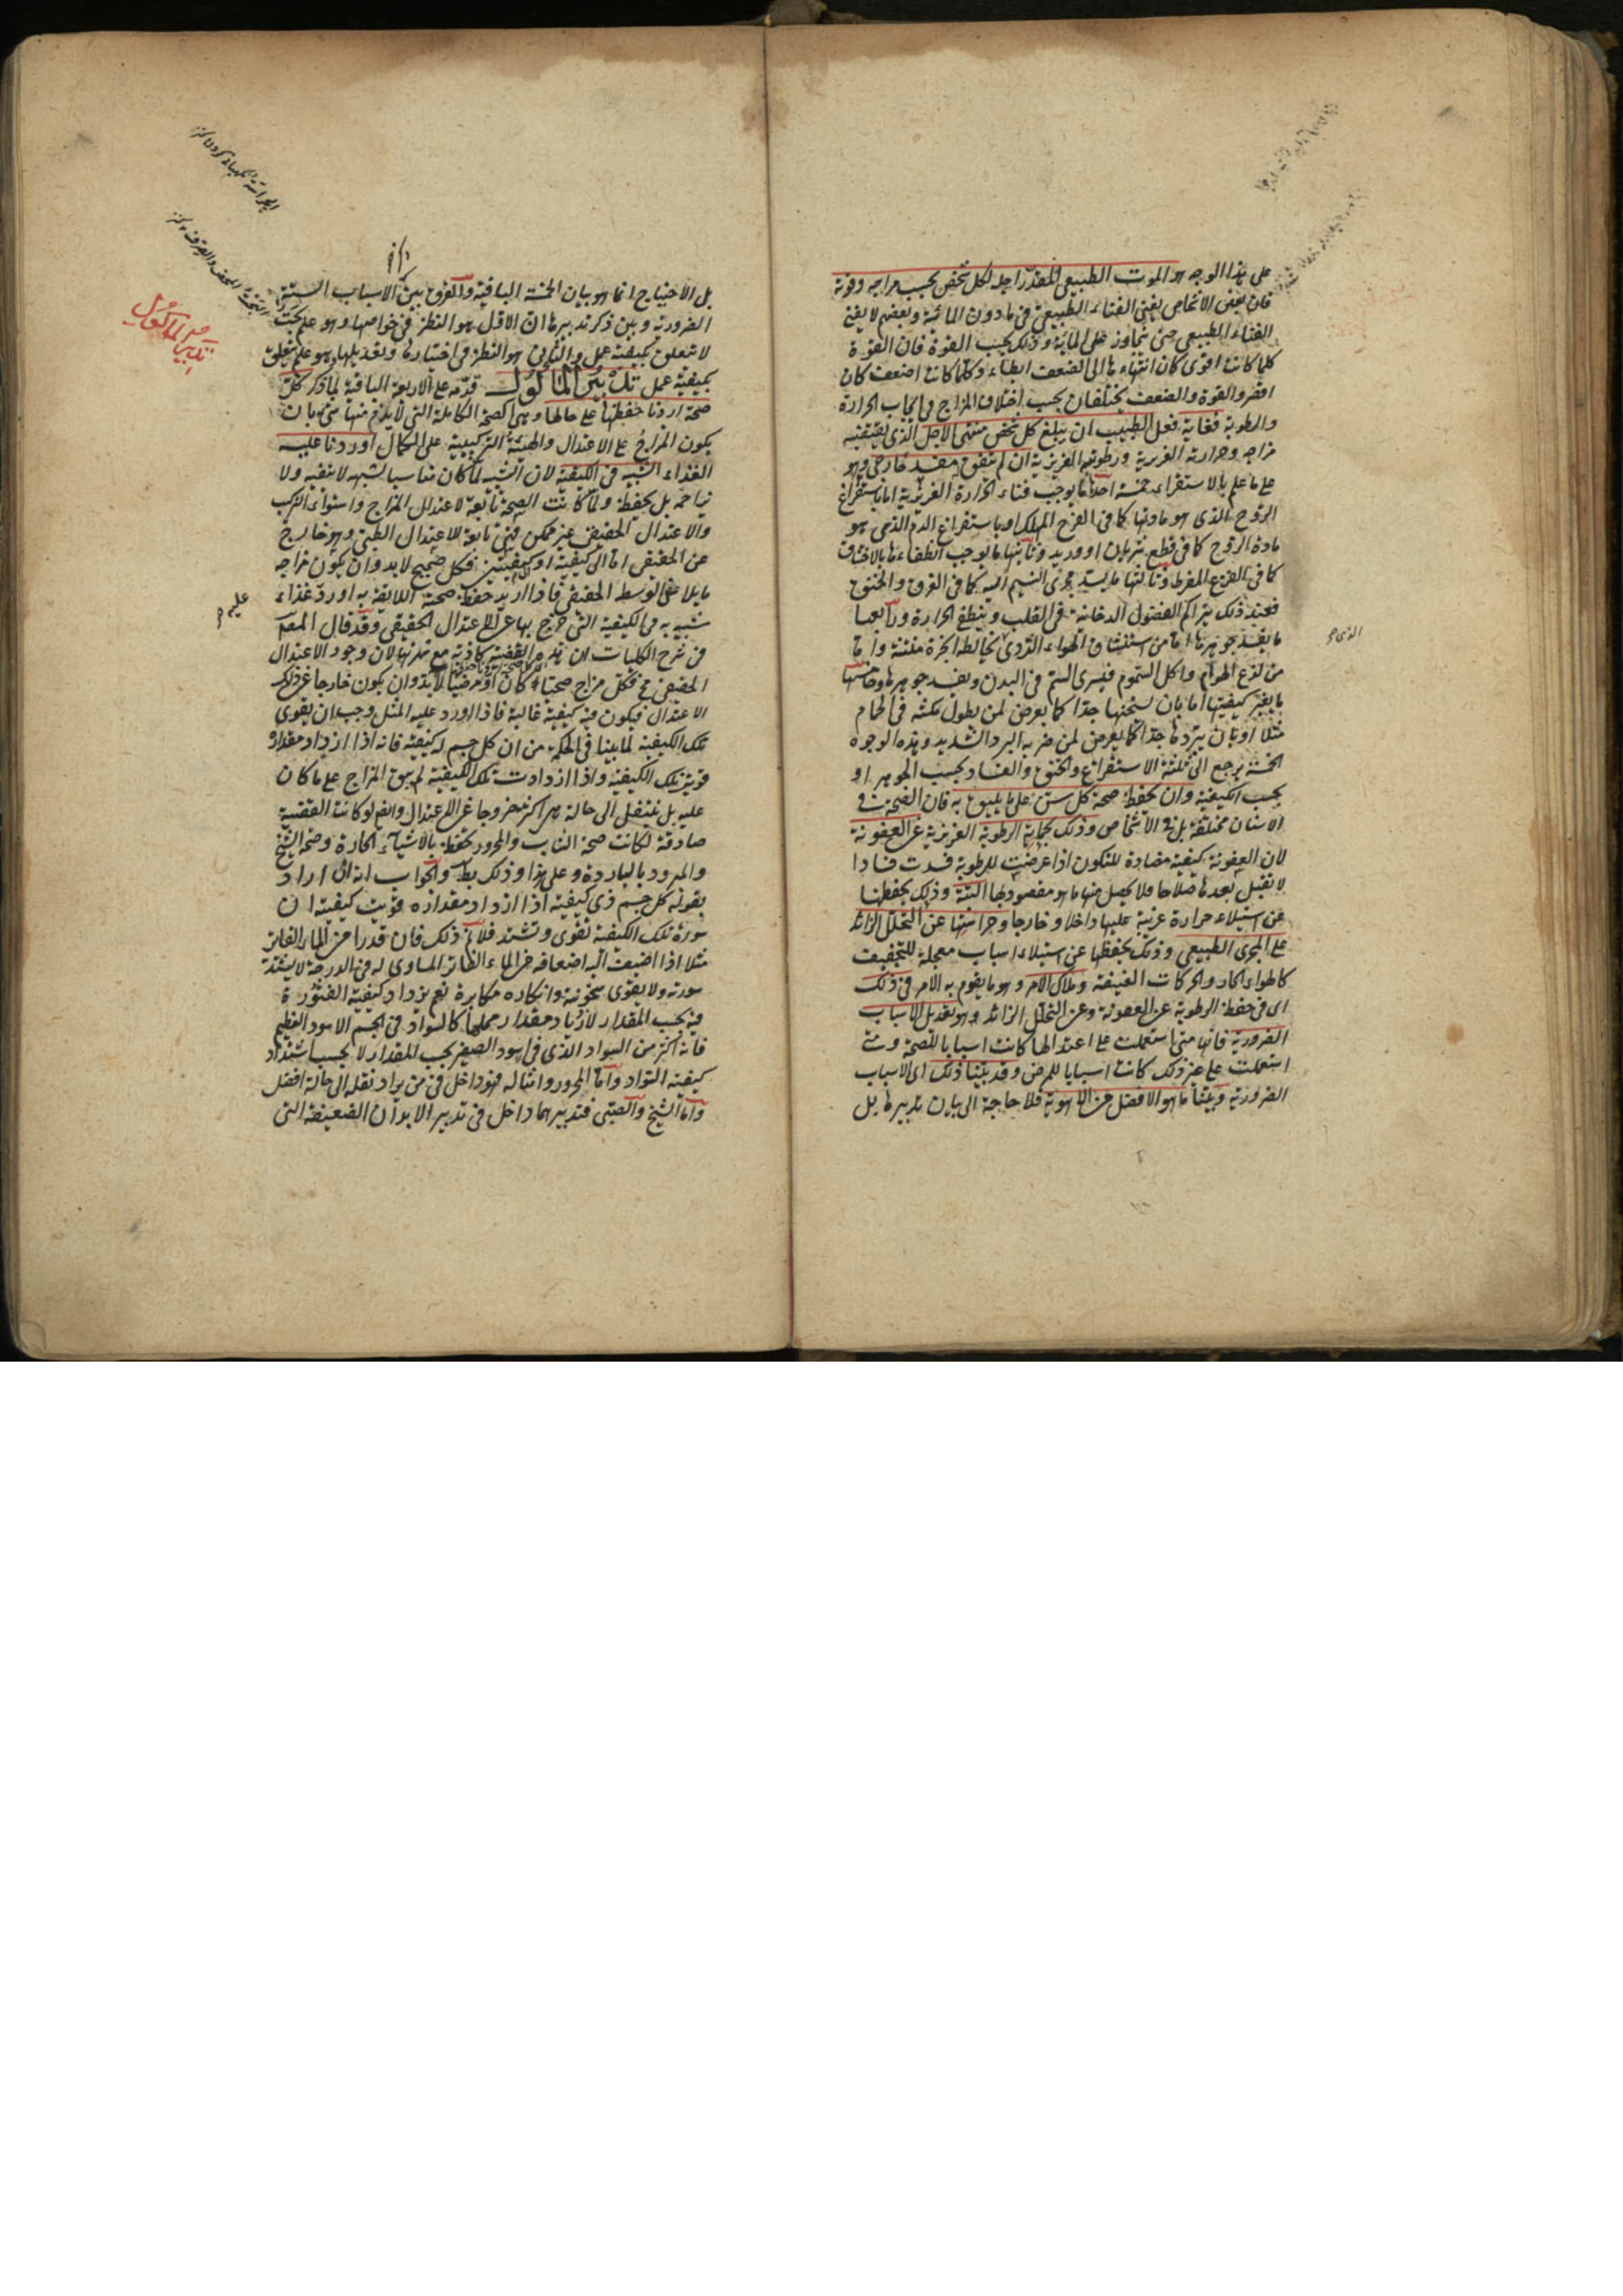 على هذا الوجه هو الموت الطبيعي المقدر اجله لكل شخص بحسب مزاجه وقوته
فان بعض الاشخاص يفنى الفناء الطبيعي في ما دون المائة وبعضهم لا يفنى
الفناء الطبيعي حتى يتجاوز على المائة وذلك بحسب القوة فان القوة
كلما كانت اقوى كان انتهاءها الى الضعف ابطاء وكلما كانت اضعف كان
اقصر والقوة والضعف يختلفان بحسب اختلاف المزاج في ايجاب الحرارة
والرطوبة فغاية فعل الطبيب ان يبلغ كل شخص منتهى الاجل الذي يقتضيه
مزاجه وحرارته الغريزية ورطوبته الغريزية ان لم يتفق مفسد خارجي وهو
على ما علم بالاستقراء خمسة احدها ما يوجب فناء الحرارة الغريزية اما باستفراغ
الروح الذي هو مادتها كما في الفرح المهلك او باستفراغ الدم الذي هو
مادة الروح كما في قطع شريان او وريد وثانيها ما يوجب انطفاءها بالاختناق
كما في الفزع المفرط وثالثها ما يسد مجرى النسيم اليه كما في الغرق والخنق
فعند ذلك يتراكم الفضول الدخانية في القلب وينطفئ الحرارة ورابعها
ما يفسد جوهرها اما من استنشاق الهواء الردي يخالطه ابخرة منتنة واما
الذي هو
من لذع الهوام واكل السموم فيسري السم في البدن ويفسد جوهرها وخامسها
ما يغير كيفيتها اما بان يسخنها جدا كما يعرض لمن يطول مكثه في الحمام
مثلا او بان يبردها جدا كما يعرض لمن ضربه البرد الشديد وهذه الوجوه
الخمسة يرجع الى ثلثة الاستفراغ والخنق والفساد بحسب الجوهر او
بحسب الكيفية وان يحفظ صحة كل سن على ما يليق به فان الصحة في
الاسنان مختلفة بل في الاشخاص وذلك بحماية الرطوبة الغريزية عن العفونة
لان العفونة كيفية مضادة للتكون اذا عرضت للرطوبة فسدت فسادا
لا تقبل بعدها صلاحا فلا يحصل منها ما هو مقصود بها البتة وذلك بحفظها
عن استيلاء حرارة غريبة عليها داخلا وخارجا وحراستها عن التحلل الزائد
على المجرى الطبيعي وذلك بحفظها عن استيلاء اسباب معجلة للتجفيف
كالهواء الحار والحركات العنيفة وملاك الامر وهو ما يقوم به الامر في ذلك
اى في حفظ الرطوبة عن العفونة وعن التحلل الزائد هو تعديل الاسباب
الضرورية فانها متى استعملت على اعتدالها كانت اسبابا للصحة ومتى
استعملت على غير ذلك كانت اسبابا للمرض وقد بينا ذلك اى الاسباب
الضرورية وبينا ما هو الافضل من الاهوية فلا حاجة الى بيان تدبيرها بل
بل الاحتياج انما هو بيان الخمسة الباقية والفرق بين الاسباب الستة
الضرورية وبين ذكر تدبيرها ان الاول هو النظر في خواصها وهو علم بحت
لا تتعلق بكيفية عمل والثاني هو النظر في اختيارها وتعديلها وهو علم يتعلق
تدبير المأكول
بكيفية عمل تدبير المأكول قدمه على الاربعة الباقية لما ذكر كل
صحة اردنا حفظها على حالها وهي الصحة الكاملة التي لا يذم منها شيء بان
يكون المزاج على الاعتدال والهيئة التركيبية على الكمال اوردنا عليه
الغذاء الشبيه في الكيفية لان الشبيه لما كان مناسبا لشبهه لا ينفيه ولا
يزاحمه بل يحفظه ولما كانت الصحة تابعة لاعتدال المزاج واستواء التركيب
والاعتدال الحقيقي غير ممكن فهي تابعة للاعتدال الطبي وهو خارج
عن الحقيقي اما الى كيفية او كيفيتين فكل صحيح لا بد وان يكون مزاجه
مايلا على الوسط الحقيقي فاذا اريد حفظ صحته اللايقة به اورد غذاء
عليه
شبيه به في الكيفية التي خرج بها عن الاعتدال الحقيقي وقد قال المص
في شرح الكليات ان هذه القضية كاذبة مع شهرتها لان وجود الاعتدال
الحقيقي مح فكل مزاج صحيا كان او مرضيا لا بد وان يكون خارجا عن ذلك
الاعتدال فيكون فيه كيفية غالبة فاذا اورد عليه المثل وجب ان يقوى
تلك الكيفية لما بينا في الحكمة من ان كل جسم له كيفية فانه اذا ازداد مقداره
قويت تلك الكيفية واذا ازدادت تلك الكيفية لم يبق المزاج على ما كان
عليه بل ينتقل الى حالة هي اكثر خروجا عن الاعتدال وايضا لو كانت القضية
صادقة لكانت صحة الشاب والمحرور يحفظ بالاشياء الحارة وصحة الشيخ
والمبرود بالباردة وعلى هذا وذلك بط والجواب انه ان اراد
بقوله كل جسم ذي كيفية اذا ازداد مقداره قويت كيفيته ان
سورة تلك الكيفية تقوى وتشتد فلا نم ذلك فان قدرا من الماء الفاتر
مثلا اذا اضيفت اليه اضعافه من الماء الفاتر المساوي له في الدرجة لا يشتد
سورته ولا يقوى سخونته وانكاره مكابرة نعم يزداد كيفية الفتورة
فيه بحسب المقدار لازدياد مقدار محلها كالسواد في الجسم الاسود العظيم
فانه اكثر من السواد الذي في اسود الصغير بحسب المقدار لا بحسب اشتداد
كيفية السواد واما المحرور وامثاله فهو داخل في من يراد نقله الى حالة افضل
واما الشيخ والصبي فتدبيرهما داخل في تدبير الابدان الضعيفة التي